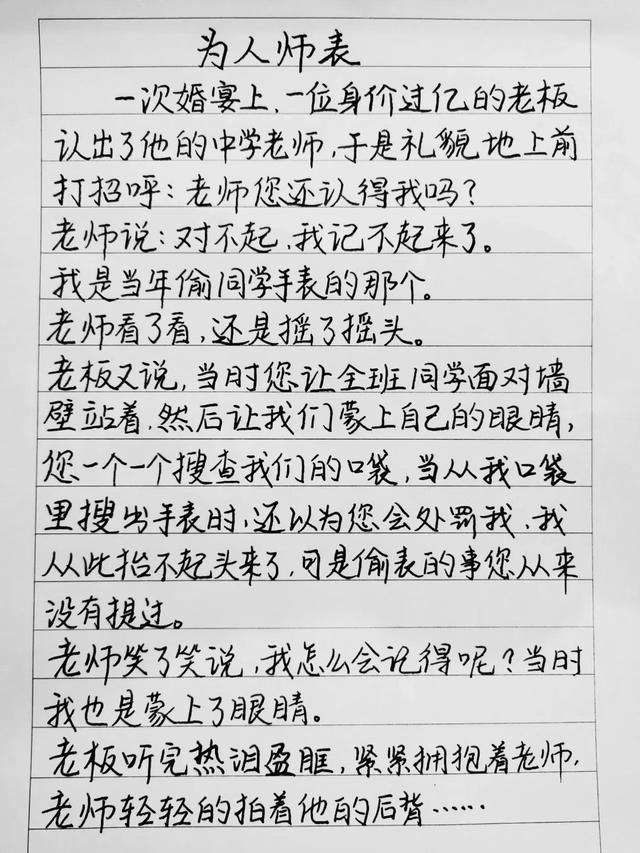 为人师表
一次婚宴上,一位身价过亿的老板
认出了他的中学老师,于是礼貌地上前
打招呼:老师您还认得我吗?
老师说:对不起,我记不起来了。
我是当年偷同学手表的那个。
老师看了看,还是摇了摇头。
老板又说,当时您让全班同学面对墙
壁站着,然后让我们蒙上自己的眼睛,
您一个一个搜查我们的口袋,当从我口袋
里搜出手表时,还以为您会处罚我,我
从此抬不起头来了,可是偷表的事您从来
没有提过。
老师笑了笑说,我怎么会记得呢?当时
我也是蒙上了眼睛。
老板听完热泪盈眶,紧紧拥抱着老师,
老师轻轻的拍着他的后背……